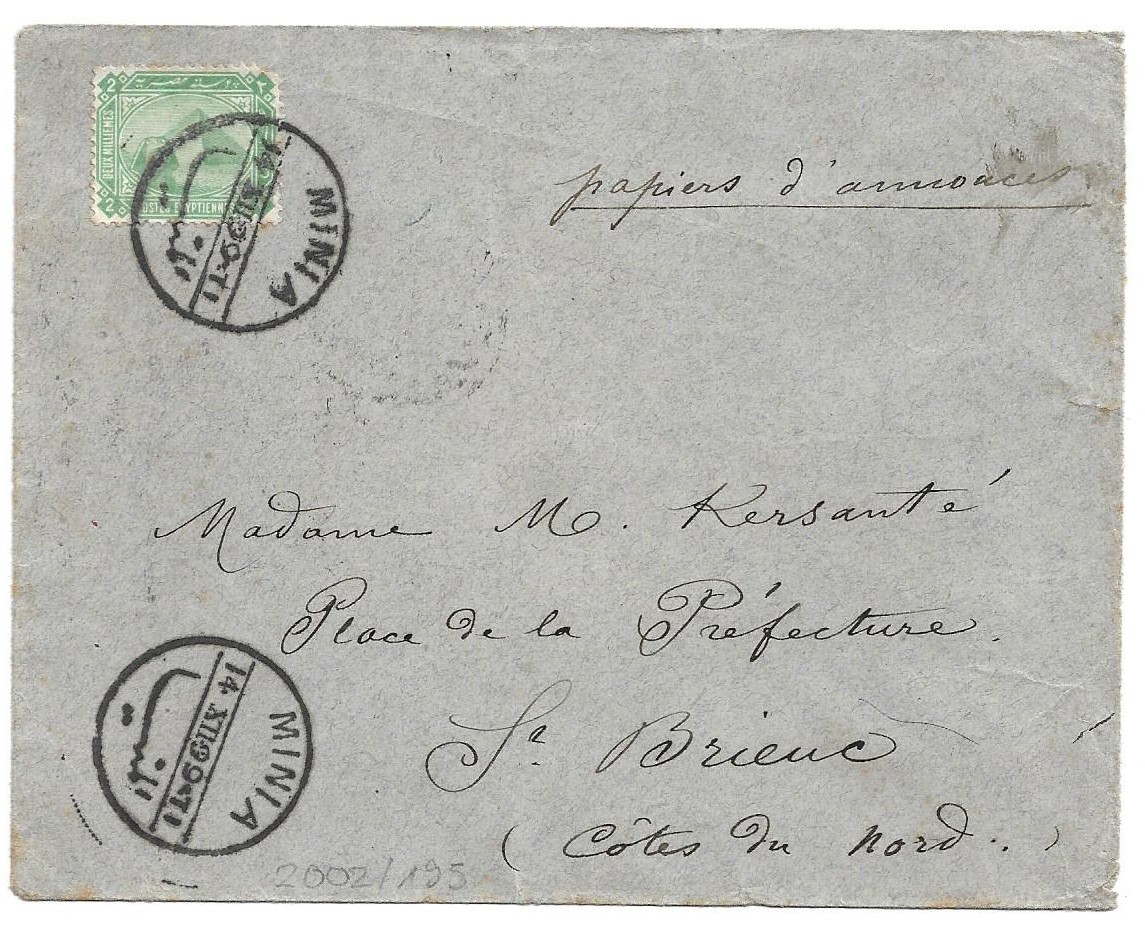 2 بوسته مصريه ٢
DEUX MILLIEMES
2 POSTES EGYPTIENNES
MINIA
14 XII 99 - T I
المنيا
papiers d'annonces
Madame M. Kersanté
Place de la Préfecture.
St. Brieuc
(Côtes du Nord..)
MINIA
14 XII 99 - T I
المنيا
2002/195